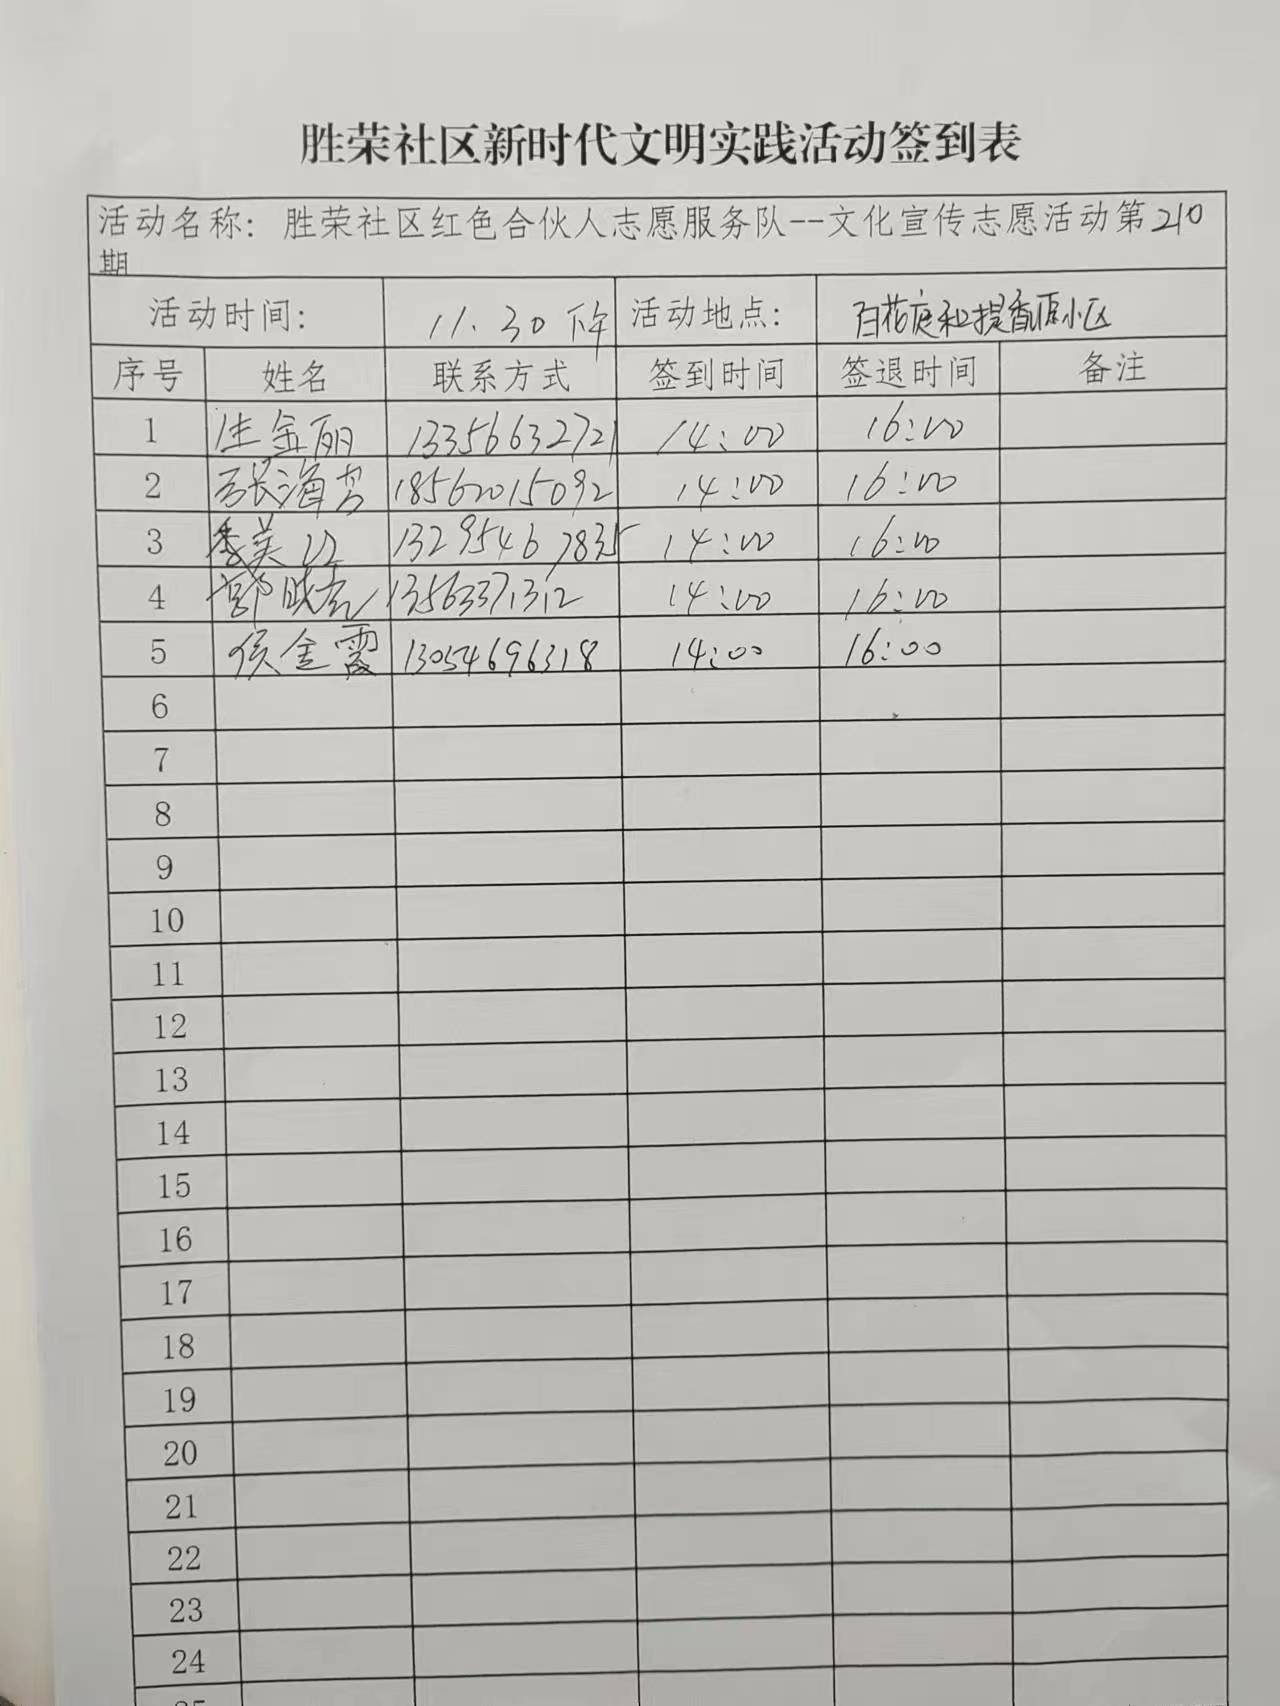 胜荣社区新时代文明实践活动签到表
活动名称：胜荣社区红色合伙人志愿服务队--文化宣传志愿活动第210
期
活动时间： 11.30下午 活动地点： 百花庭和提香源小区
序号 姓名 联系方式 签到时间 签退时间 备注
1 金丽 13356632721 14:00 16:00
2 张海 18562015092 14:00 16:00
3 李美 13295467835 14:00 16:00
4 郭 13563371312 14:00 16:00
5 侯金霞 13054696318 14:00 16:00
6
7
8
9
10
11
12
13
14
15
16
17
18
19
20
21
22
23
24
25